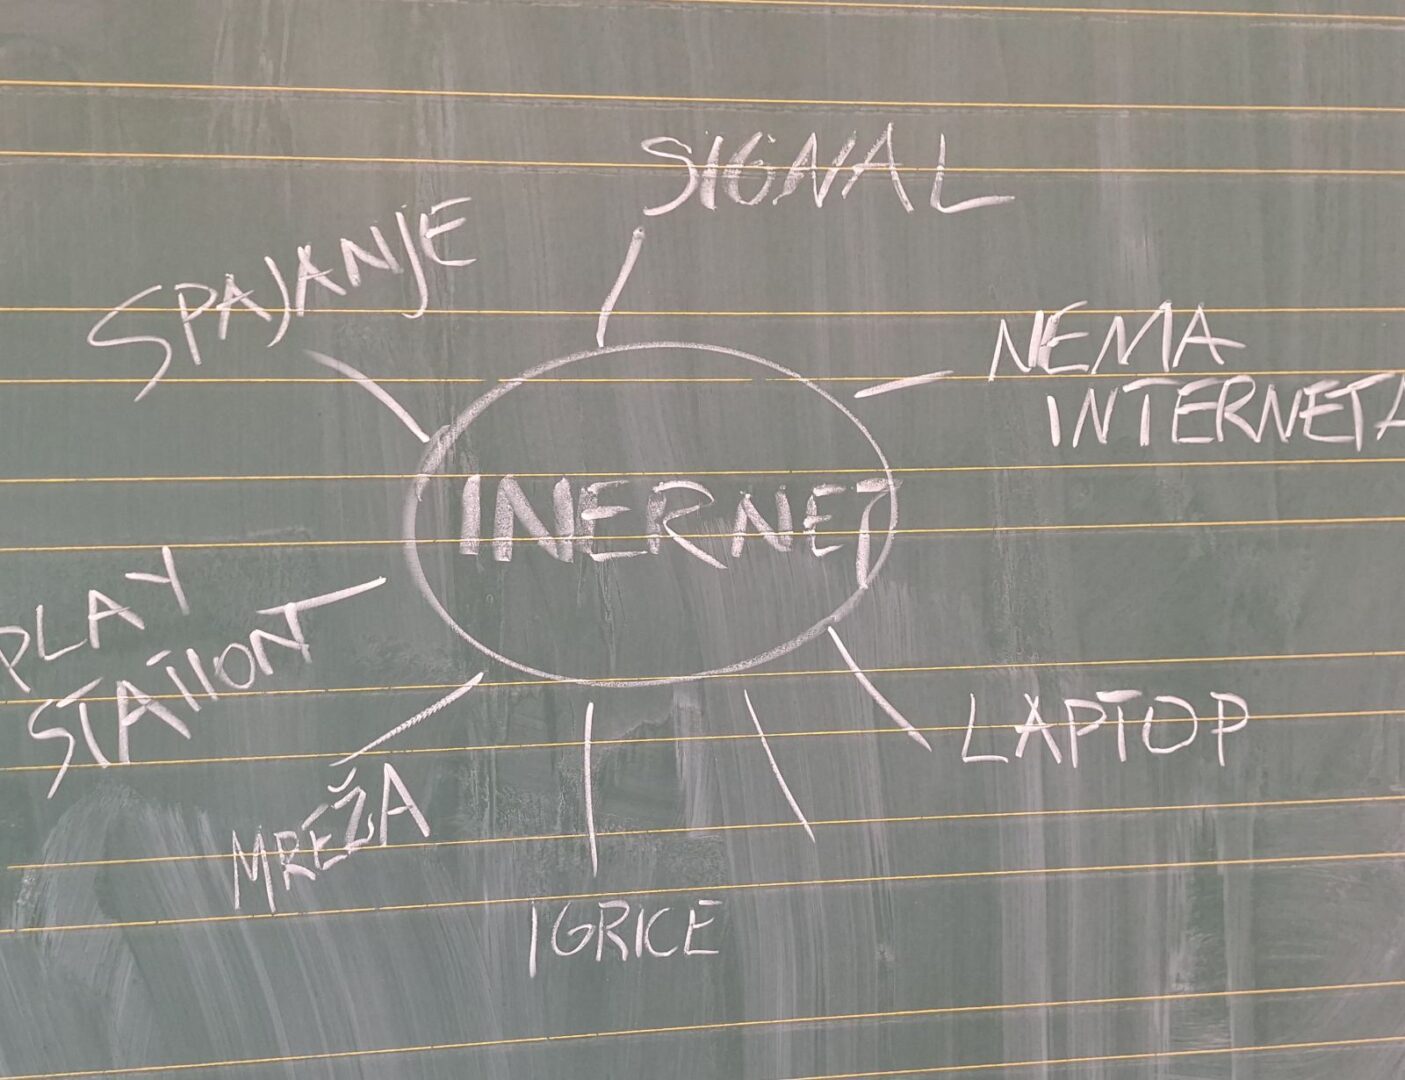 SIGNAL
SPAJANJE
NEMA
INTERNETA
INERNET
PLAY
STATIONT
LAPTOP
MREŽA
IGRICE